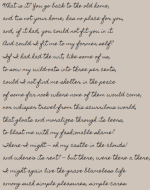 What is it? You go back to the old home,
and 'tis not your home, has no place for you,
and, if it had, you could not fit you in it.
And could I fit me to my former self?
If I had had the wit, like some of us,
to sow my wild-oats into three per cents,
could I not find me shelter in the peace
of some far nook where none of them would come,
nor whisper travel from this scurrilous world,
that gloats and moralizes through its leers,
to blast me with my fashionable shame?
There I might — oh my castle in the clouds!
and where's its rent? — but there, were there a there,
I might again live the grave blameless life
among such simple pleasures, simple cares